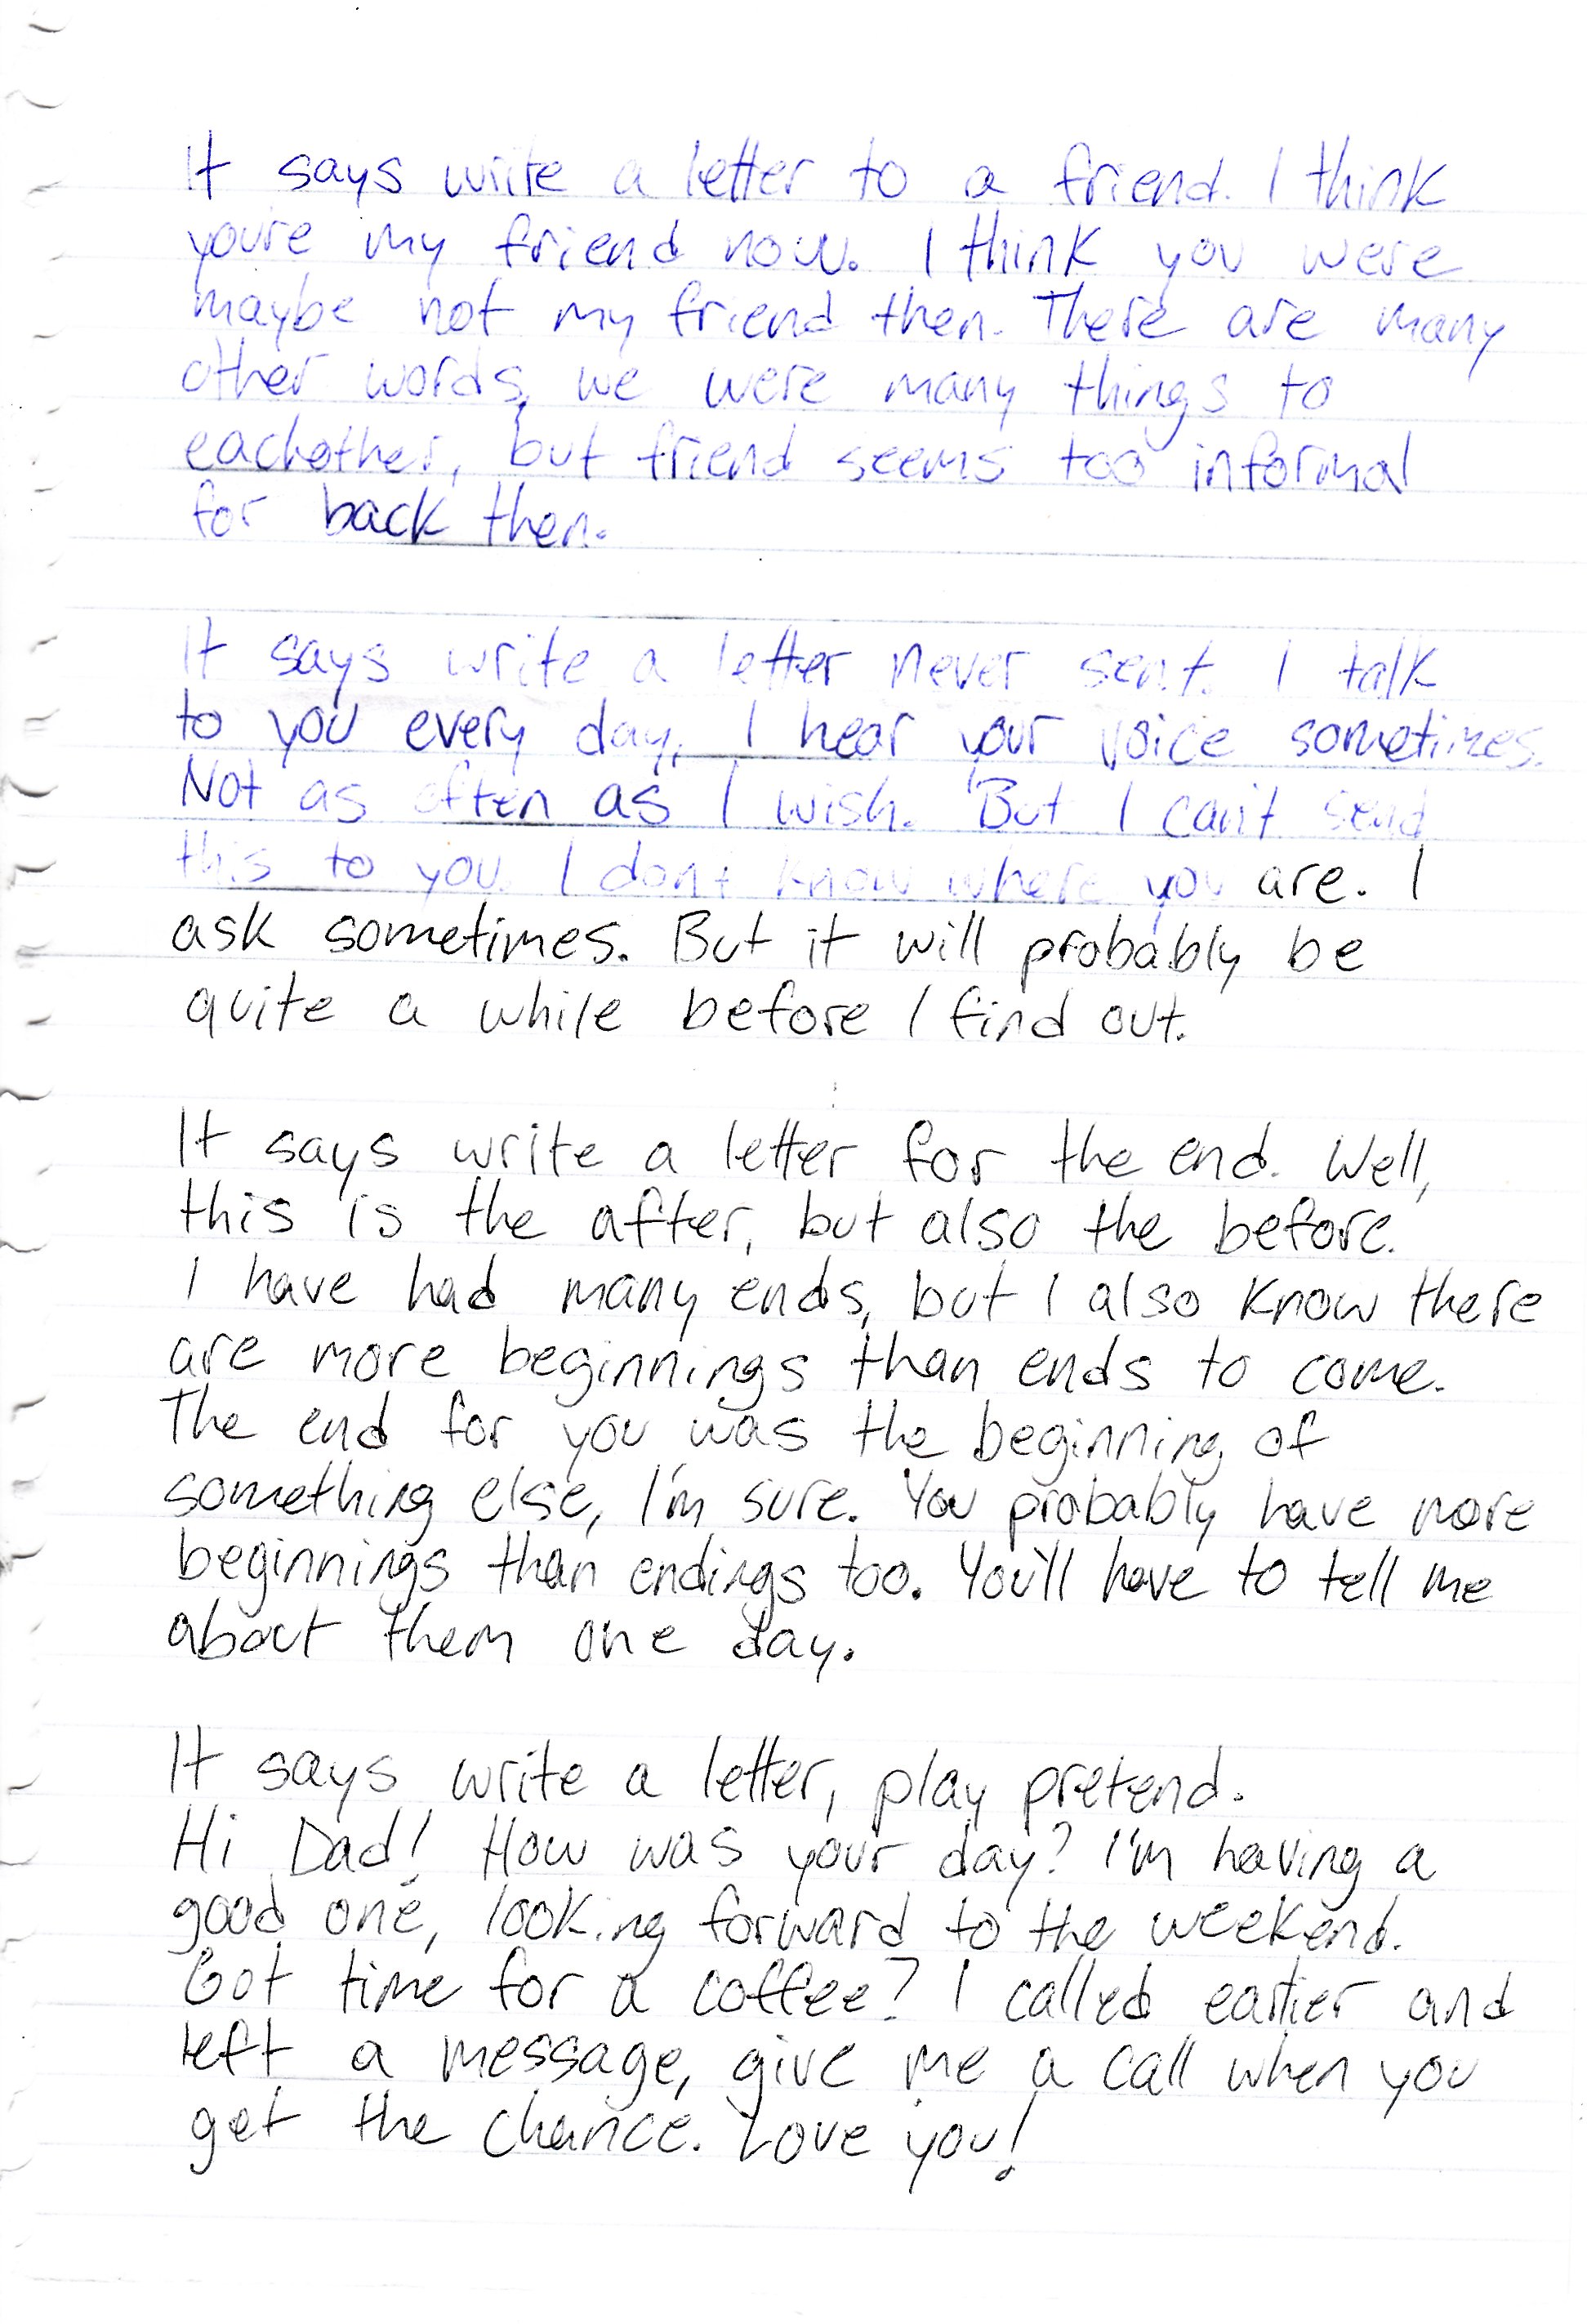 It says write a letter to a friend. I think
you're my friend now. I think you were
maybe not my friend then. There are many
other words, we were many things to
eachother, but friend seems too informal
for back then.
It says write a letter never sent. I talk
to you every day, I hear your voice sometimes.
Not as often as I wish. But I can't send
this to you. I don't know where you are. I
ask sometimes. But it will probably be
quite a while before I find out.
It says write a letter for the end. Well,
this is the after, but also the before.
I have had many ends, but I also know there
are more beginnings than ends to come.
The end for you was the beginning of
something else, I'm sure. You probably have more
beginnings than endings too. You'll have to tell me
about them one day.
It says write a letter, play pretend.
Hi Dad! How was your day? I'm having a
good one, looking forward to the weekend.
Got time for a coffee? I called earlier and
left a message, give me a call when you
get the chance. Love you!